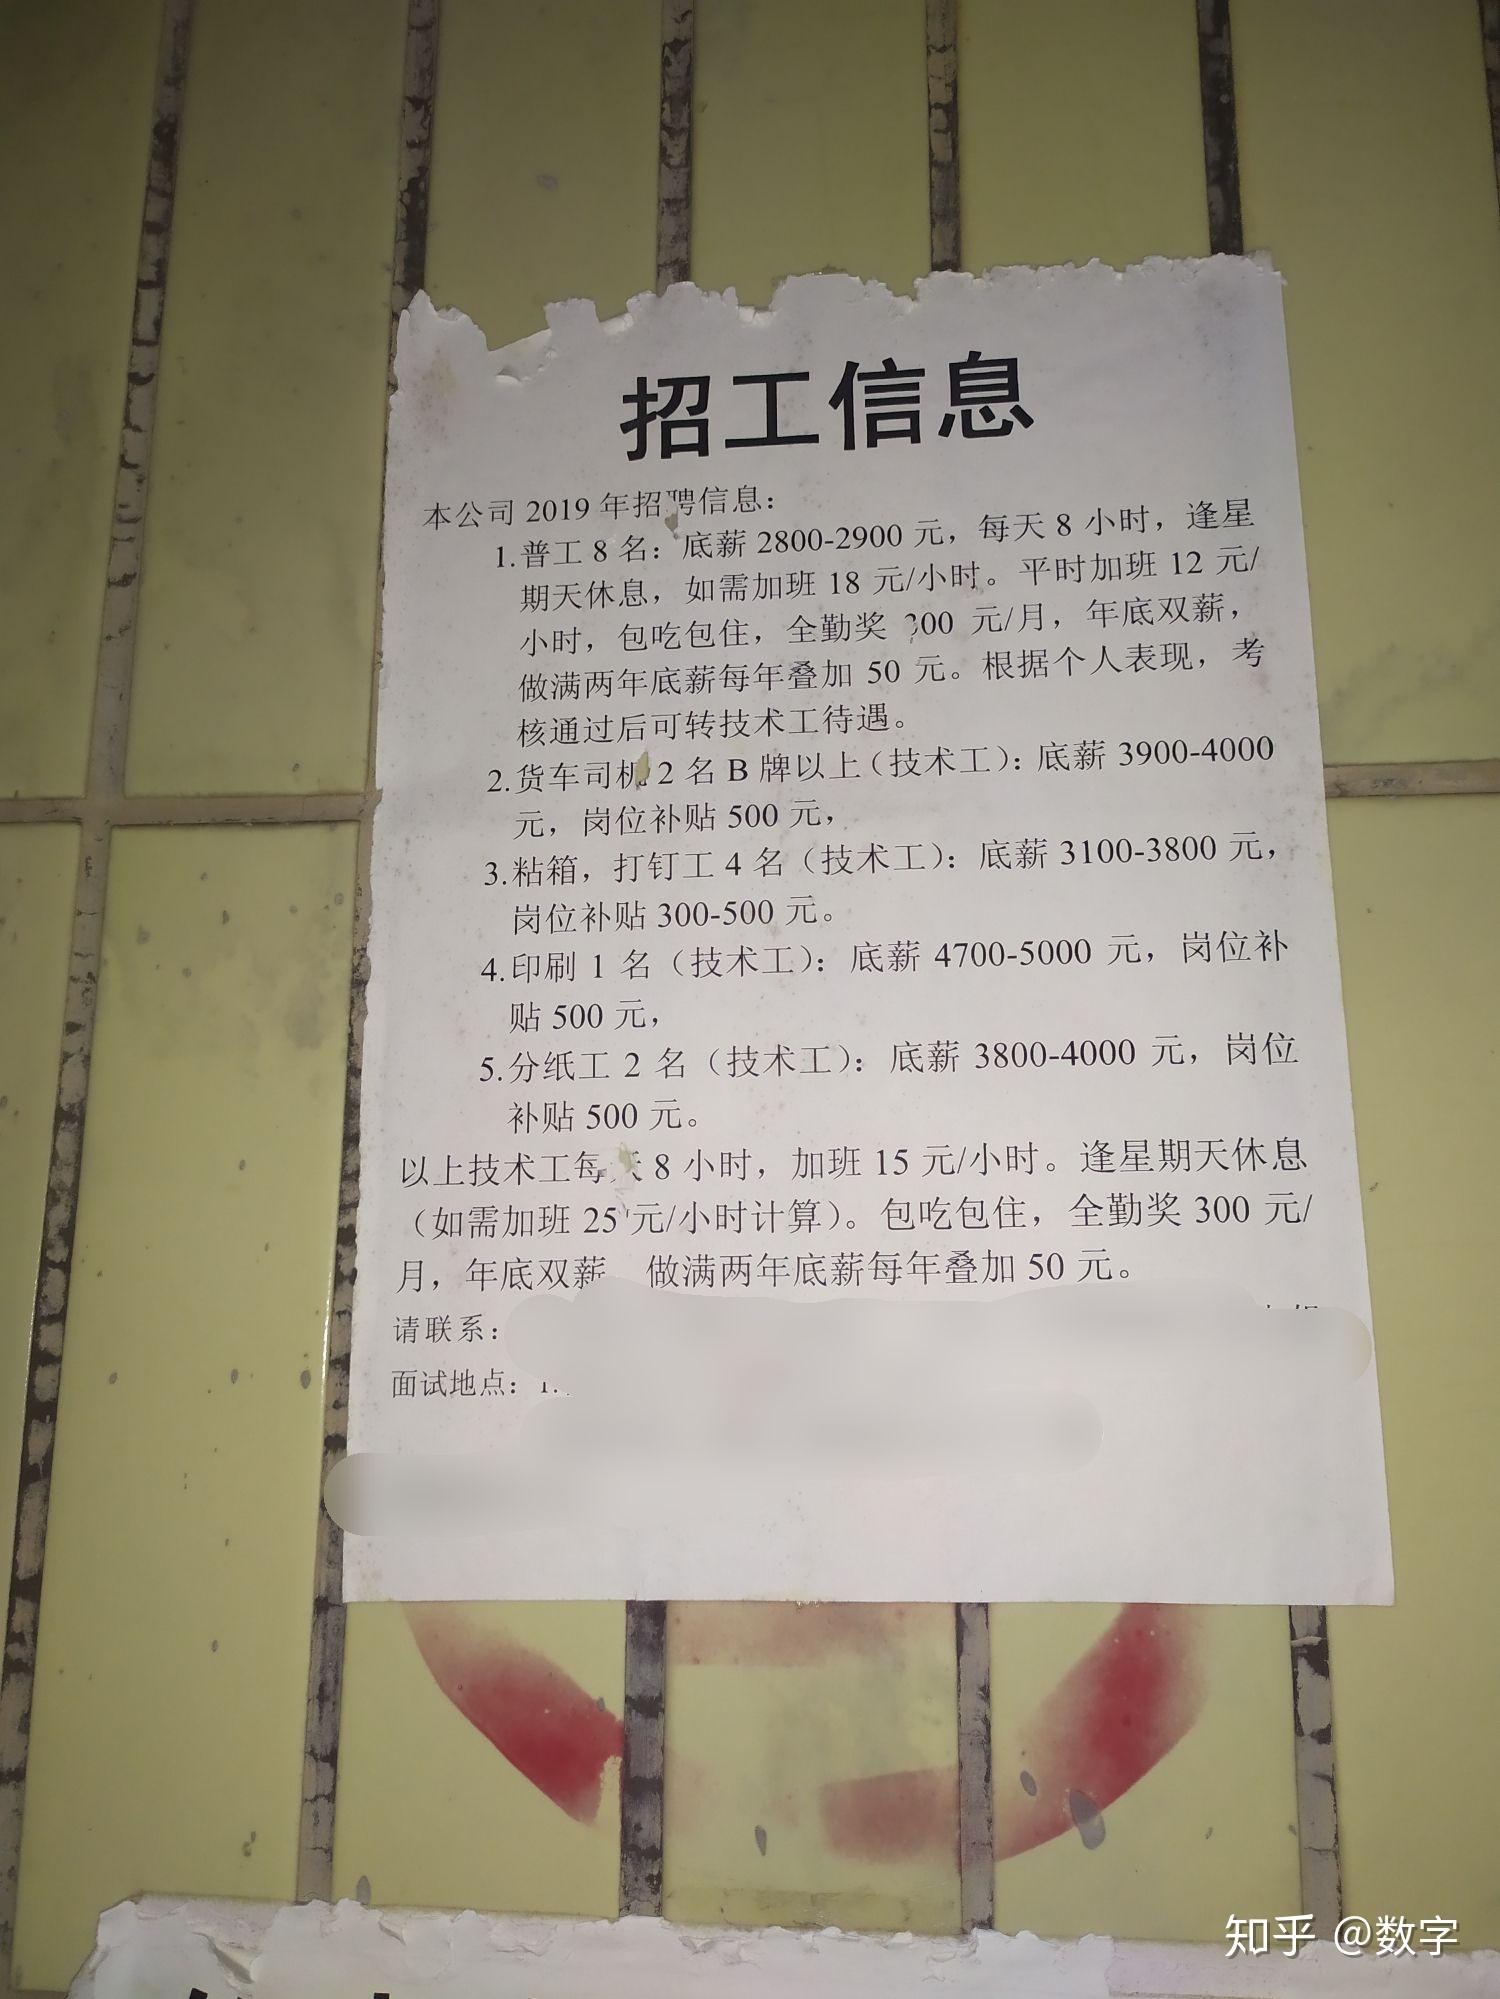 招工信息
本公司 2019 年招聘信息：
1.普工 8 名：底薪 2800-2900 元，每天 8 小时，逢星
期天休息，如需加班 18 元/小时。平时加班 12 元/
小时，包吃包住，全勤奖 300 元/月，年底双薪，
做满两年底薪每年叠加 50 元。根据个人表现，考
核通过后可转技术工待遇。
2.货车司机 2 名 B 牌以上（技术工）：底薪 3900-4000
元，岗位补贴 500 元，
3.粘箱，打钉工 4 名（技术工）：底薪 3100-3800 元，
岗位补贴 300-500 元。
4.印刷 1 名（技术工）：底薪 4700-5000 元，岗位补
贴 500 元，
5.分纸工 2 名（技术工）：底薪 3800-4000 元，岗位
补贴 500 元。
以上技术工每天 8 小时，加班 15 元/小时。逢星期天休息
（如需加班 25 元/小时计算）。包吃包住，全勤奖 300 元/
月，年底双薪 做满两年底薪每年叠加 50 元。
请联系：
面试地点：
知乎 @数字